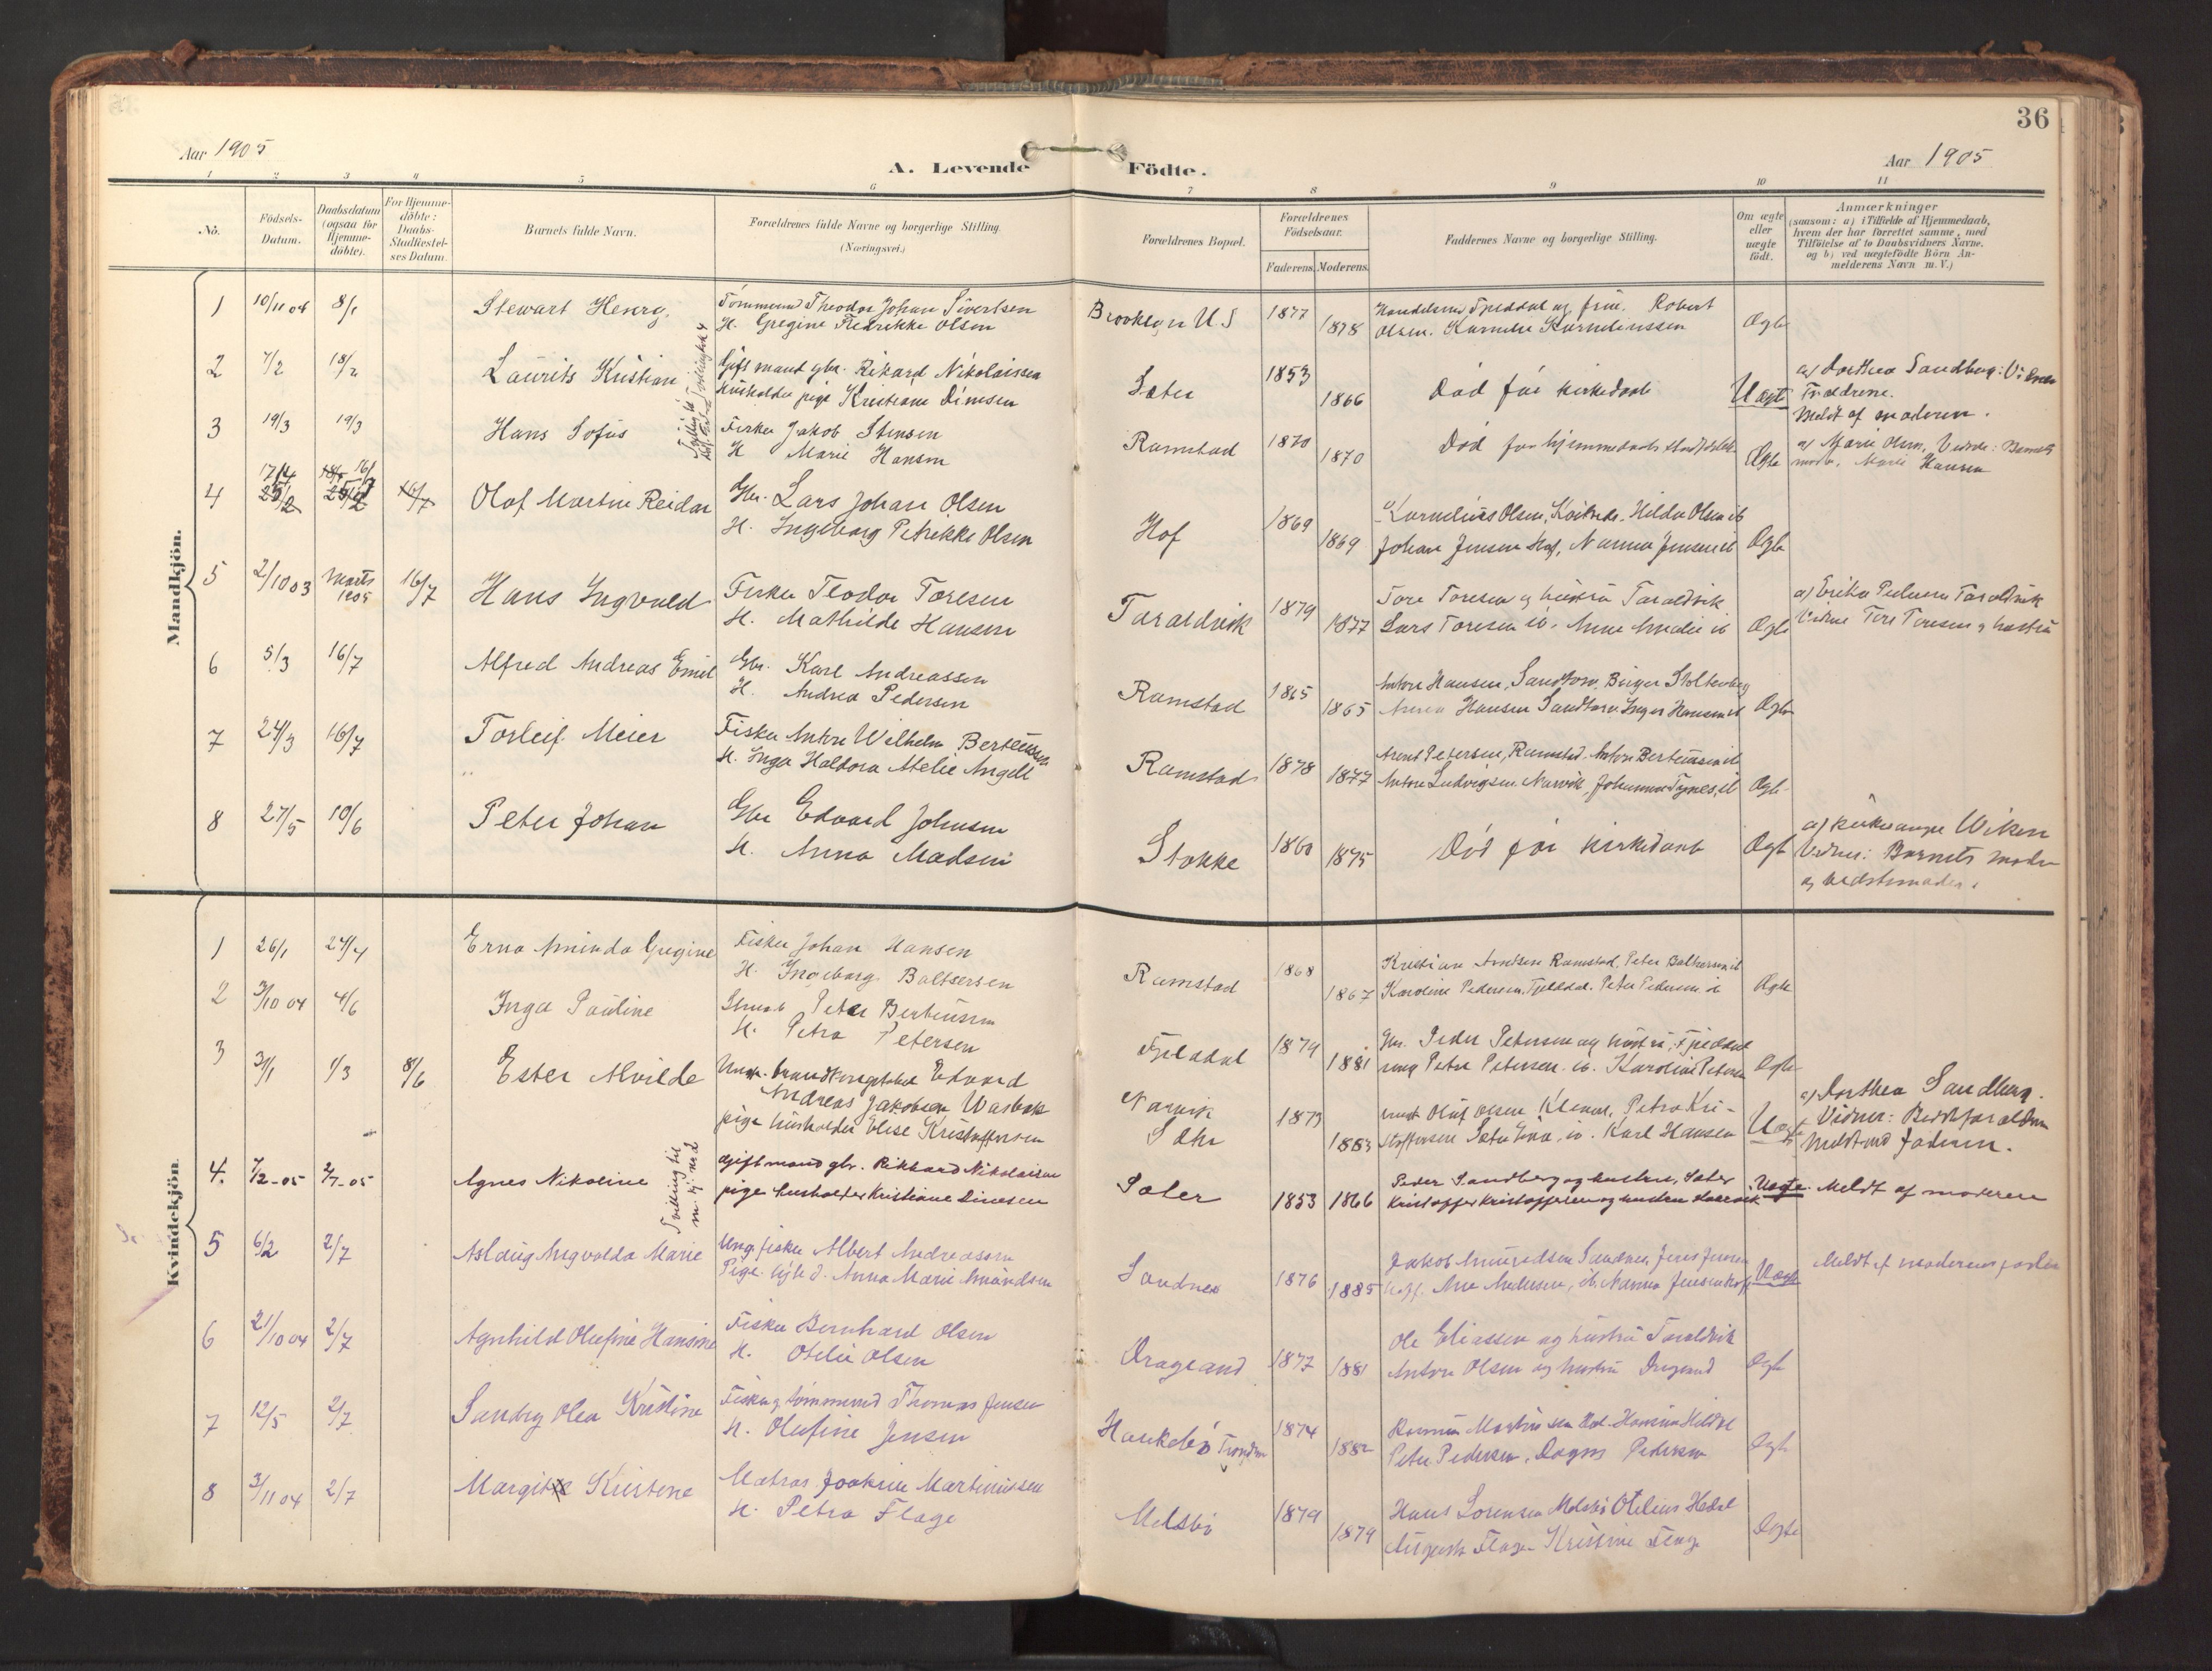 36
Aar 1905
A. Levende Födte.
Aar 1905
1 2 3 4 5 6 7 8 9 10 11
No.
Födsels-Datum.
Daabsdatum (ogsaa for Hjemme-döbte).
For Hjemme-döbte: Daabs-Stadfæstel-ses Datum.
Barnets fulde Navn.
Forældrenes fulde Navne og borgerlige Stilling.
(Næringsvei.)
Forældrenes Bopæl.
Forældrenes Födselsaar.
Faderens. Moderens.
Faddernes Navne og borgerlige Stilling.
Om ægte eller uægte födt.
Anmærkninger
(saasom: a) i Tilfælde af Hjemmedaab,
hvem der har forrettet samme, med
Tilföielse af to Daabsvidners Navne.
og b) ved uægtefödte Börn An-
melderens Navn m. V.)
Mandkjön.
1 10/11 04 8/1 Stewart Henry. Tömmermd Theodor Johan Sivertsen
H. Gregine Fredrikke Olsen
Brooklyn U.S 1877 1878 Fjelddal og frue. Robert
Olsen. Kornelie Korneliussen Ægte
2 7/2 18/2 Laurits Kristian
Gift mand gbr. Rikard Nikolaisen
Husholder pige Kristiane Dinesen
Sæter 1853 1866 Död för kirkedaab Uægte
a) Dorthea Sandberg: Vidner
Forældrene.
Meldt af moderen.
3 19/3 19/3 Hans Sofus Fisker Jakob Stensen
H Marie Hansen
Ramstad 1870 1870 Död for hjemmedaabs stadfæstelse Ægte
a) Marie Olsen, Vidner: Barnets
moder, Marie Hansen
4 17/4 16/7 25/2 16/7 Olaf Martin Reidar Gbr. Lars Johan Olsen
H. Ingeborg Petrikke Olsen
Hof 1869 1869 Kornelius Olsen, Hilda Olsen ib
Johan Jensen Hof, Nanna Jensen ib Ægte
5 2/10 03 Marts 1905 16/7 Hans Ingvald Fisker Teodor Toresen
H. Mathilde Hansen
Taraldvik 1879 1877 Tore Toresen og hustru Taraldvik
Lars Toresen ib. Anne Amalie ib Ægte
a) Erika Pedersen Taraldvik
Vidne Tore Toresen og hustru
6 5/3 16/7 Alfred Andreas Emil Gbr. Karl Andreassen
H. Andrea Pedersen
Ramstad 1865 1865 Anton Hansen, Sandtorv. Birger Stoltenberg
Hansen Sandtorv Inger Hansen ib Ægte
7 24/3 16/7 Torleif Meier Fisker Anton Wilhelm Berteussen
H. Inga Haldora Atelie Angell
Ramstad 1878 1877 Arent Petersen, Ramstad. Anton Berteussen ib
Anton Ludvigsen. Narvik, Johanna Tynes, ib Ægte
8 27/5 10/6 Peter Johan Gbr Edvard Johnsen
H. Anna Madsen
Stokke 1860 1875 Död för kirkedaab Ægte
a) Kirkesanger Wiken
Vidner: Barnets moder
og bedstemoder.
Kvindekjön.
1 26/1 24/4 Erna Aminda Gregine Fisker Johan Hansen
H. Ingeborg Baltsersen
Ramstad 1868 1867 Kristian Arntsen Ramstad, Peter Baltsersen ib
Karoline Pedersen, Fjelddal. Peter Pedersen ib Ægte
2 3/10 04 4/6 Inga Pauline Peter Berteussen
H. Petra Petersen
Fjelddal 1879 1881 Gbr. Peder Petersen og hustru, Fjelddal
ung Petra Petersen. ib. Karoline Petersen Ægte
3 31/1 1/3 8/6 Ester Alvilde Edvard
Andreas Jakobsen Wasbak
pige husholder Elise Kristoffersen
Narvik
Sæter 1873 1883 Oluf Olsen Petra Kri-
stoffersen Sæter ib. Karl Hansen Uægte
a) Dorthea Sandberg.
Vidner: Bedsteforældrene
Meldt ved faderen.
4. 7/2-05 2/7-05 Agnes Nikoline Tvilling til m. kj. nr 2
Gift mand gbr. Rikhard Nikolaisen
pige husholder Kristiane Dinesen
Sæter 1853 1866 Peder Sandberg og hustru, Sæter
Kristoffer Kristoffersen og hustru Uægte. Meldt af moderen
5 6/2 2/7 Aslaug Ingvalda Marie Ung. fisker Albert Andreassen
Pige Anna Marie Amundsen
Sandnes 1876 1885 Jakob Amundsen Sandnes, Jens Jensen
Hof. Ane Andersen, ib. Nanna Jensen Hof Uægte Meldt af moderens fader
6 21/10 04 2/7 Agnhild Olufine Hansine Fisker Bernhard Olsen
H. Otelie Olsen
Drageland 1877 1881 Ole Eliassen og hustru Taraldvik
Anton Olsen og hustru Drageland Ægte
7 12/5 2/7 Sandry Olea Kristine Fisker og tömmermd Thomas Jensen
H. Olufine Jensen
Haukebö 1874 1882 Rasmus
Peter Pedersen, Dagny Pedersen Ægte
8 3/11 04 2/7 Margit Kristene Matros Joakim Martinussen
H. Petra Flage
Melsbö 1879 1879 Hans Sörensen Melsbö Otelius
Augusta Flage Kristine Flage Ægte